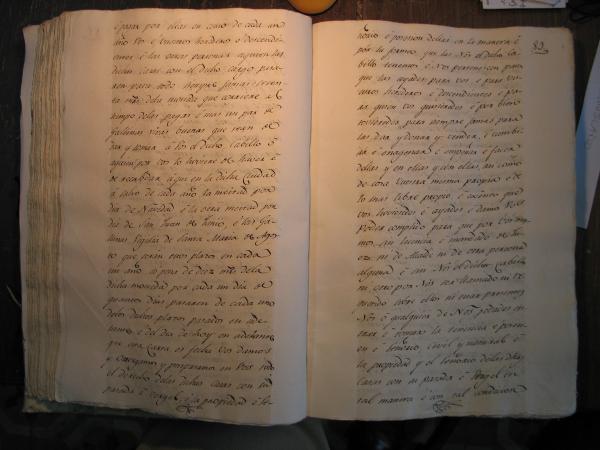 é pasar por ellas en cima de cada un
año vos é vuestros herederos é descendi-
entes é las otras personas
dichas casas con el dicho cargo para
para todo tiempo jamas
mrs. dela moneda que corriere al
tiempo delas pagas é mas un par de
gallinas vivas buenas que sean de
dar y tomar á Nos el dicho Cabildo ó
aquien por nos lo hoviere de haver é
de recabdar aqui en la dicha Ciudad
á salvo de cada año la meitad por
dia de Navidad é la otra meitad por
dia de San Juan de Junio, é las ga-
llinas Vigilia de Santa Maria de Agos-
to que serán esos plazos en cada
un año so pena de diez mrs. dela
dicha moneda por cada un dia de
quantos dias pasaren de cada uno
delos dichos plazos pasados en ade-
lante é del dia de hoy en adelante
que esta Carta es fecha Vos damos
y otorgamos y traspasamos en Vos todo
el derecho delas dichas Casas con su
parada é corral é la propiedad é Se-
83
ñorio é posesion dellas en la manera é
por la forma que las Nos el dicho Ca-
bildo tenemos é á Nos pertenecen para
que las ayades para vos é para vu-
estros herederos é descendientes é pa-
ra quien vos quisierdes é por bien
tovierdes para siempre jamas para
las dar y donar y vender, é cambi-
ar é enagenar é empeñar é facer
dellas y en ellas y con ellas, asi como
de cosa vuestra misma propia é de
lo mas libre propio é esento que
vos hoviesedes é ayades é damos Vos
Poder complido para que por vos mis-
mos, sin licencia é mandado de Ju-
ez ni de Alcalde ni de otra persona
alguna é sin Nos el dicho Cabildo
ni otro por Nos sea llamado ni re-
querido sobre ello ni ser presentes
Nos é qualquier de Nos podades en-
trar é tomar la tenencia é posesi-
on é Señorio, civil y natural é
la propiedad y el señorio delas dichas
Casas con su parada é Corral en
tal manera é con tal condicion